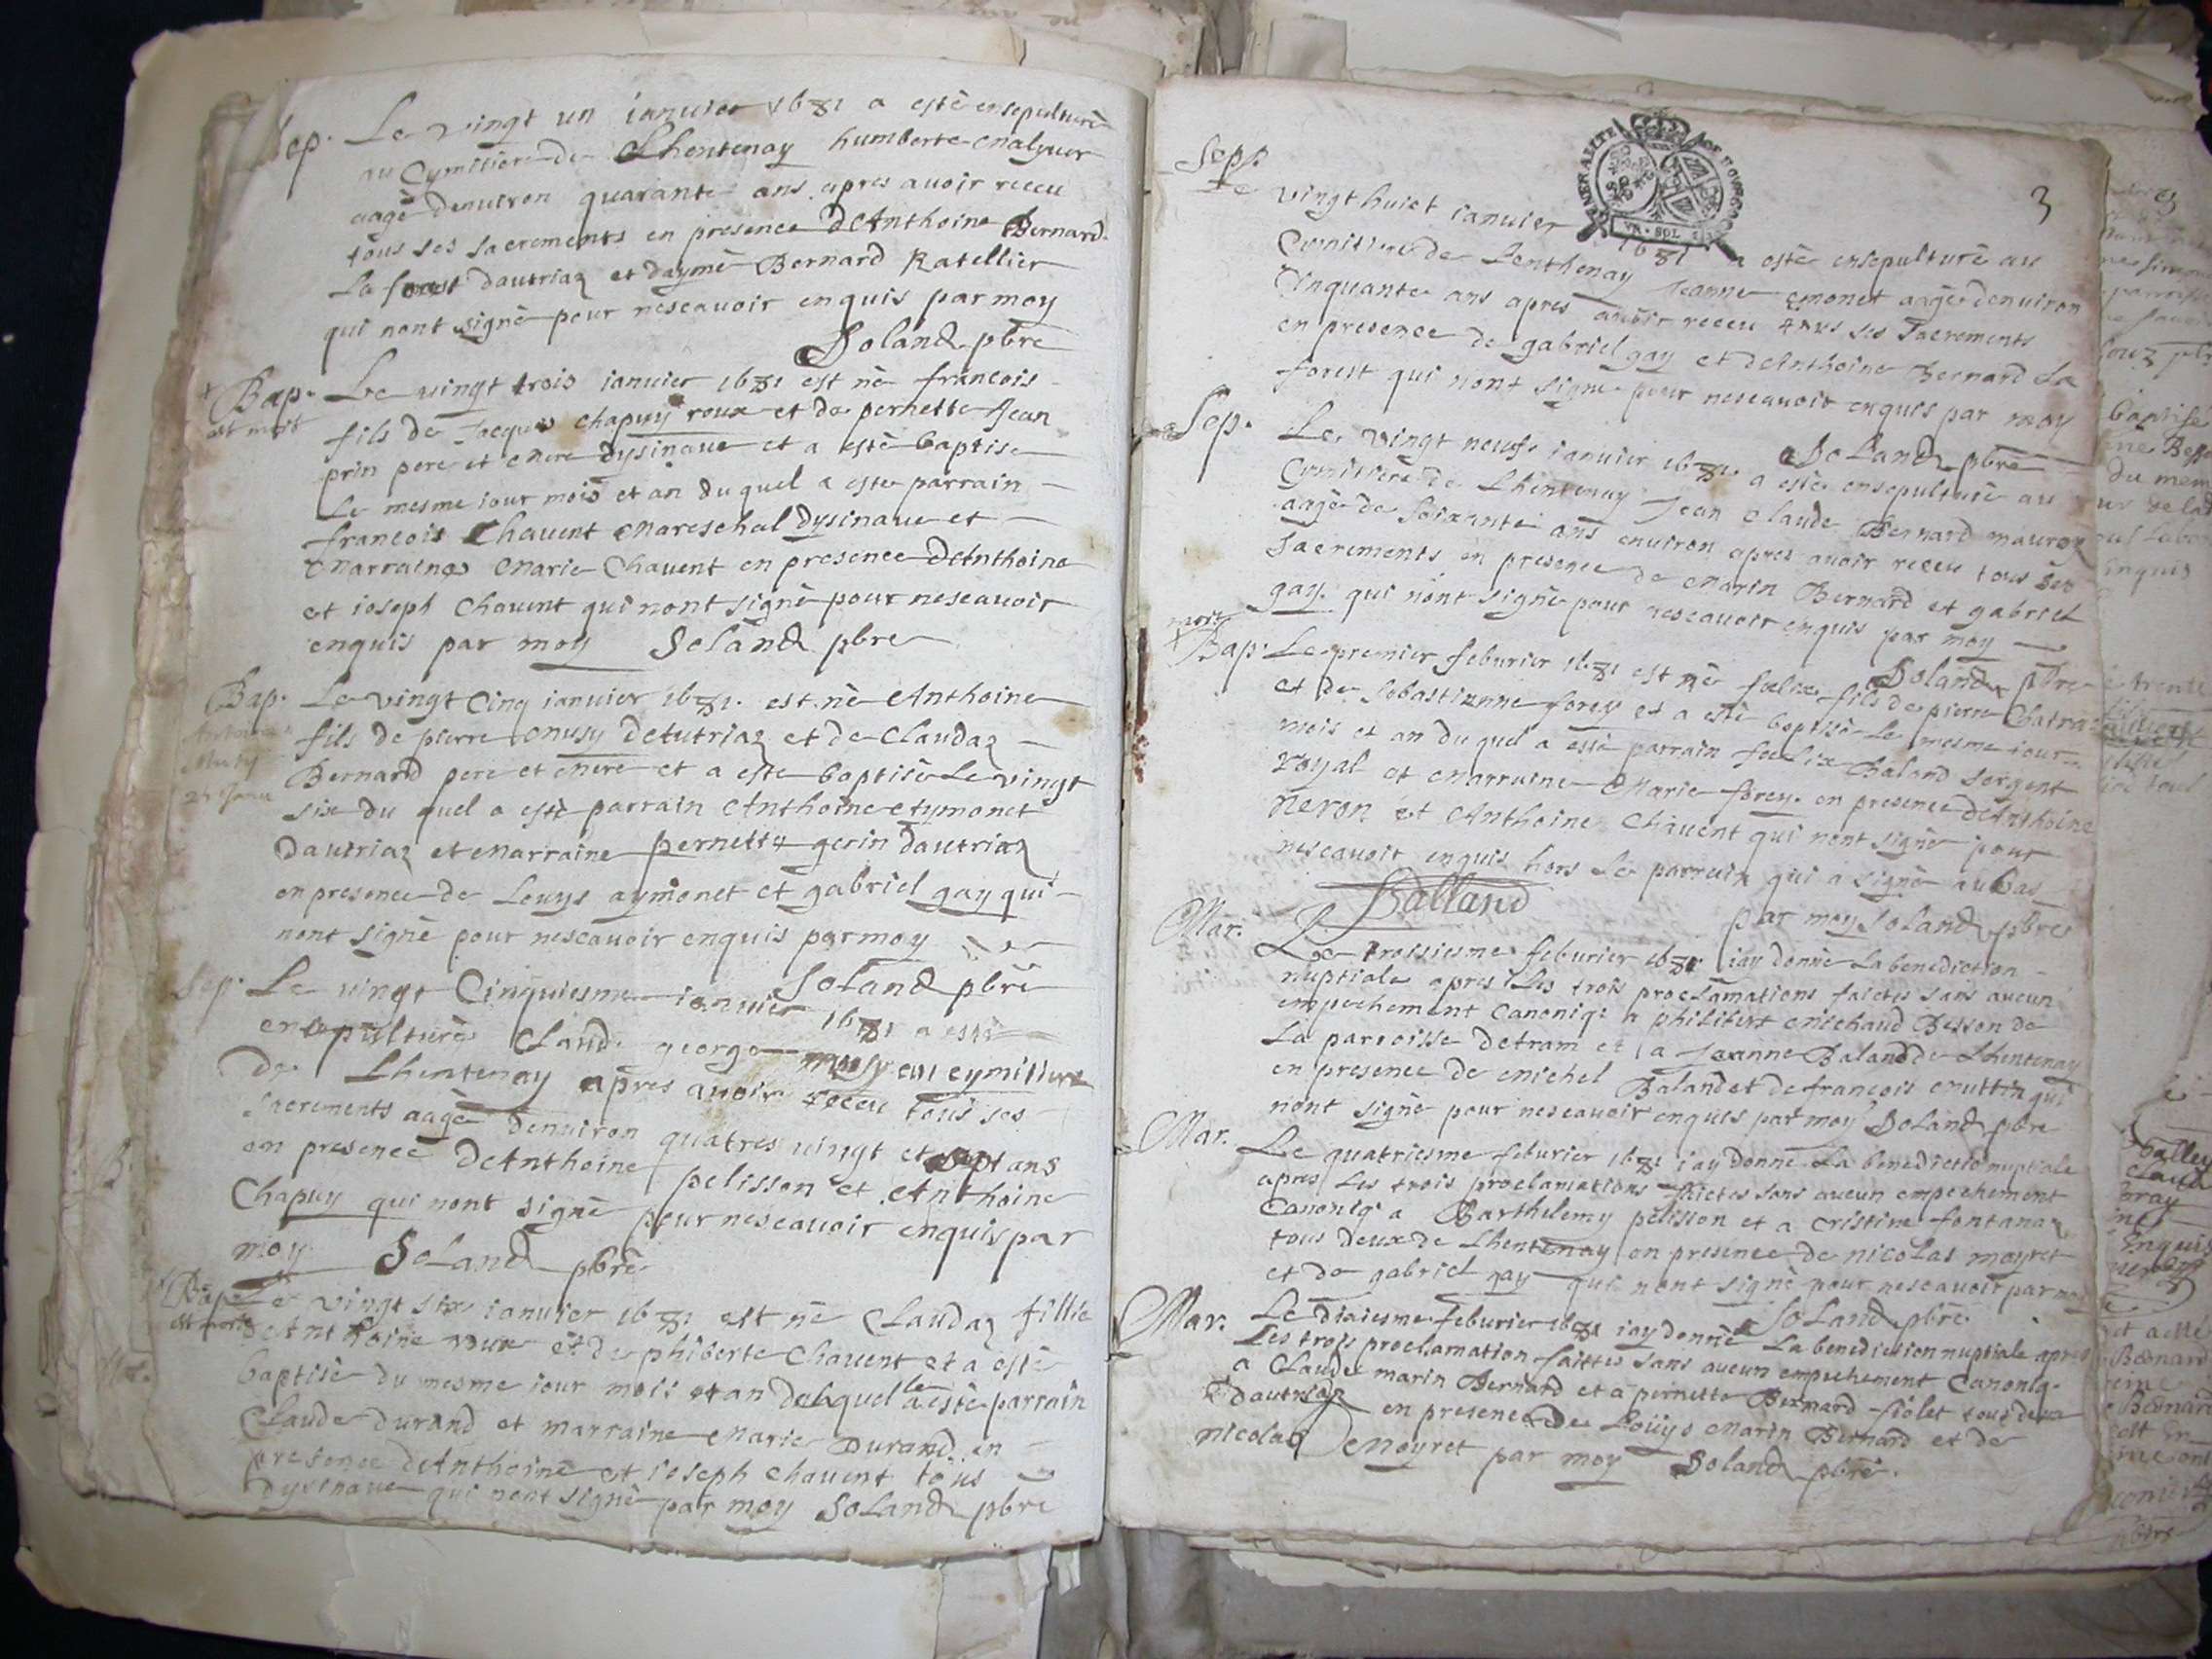 Sep. Le vingt un ianuier 1681 a esté ensepulturé
au Cymitiere de Lhentenay humberte
aagé denuiron quarante ans apres auoir receu
tous ses sacrements en presence d'Anthoine Bernard
La forest dautriaz et daymé Bernard Ratellier
qui nont signé pour nescauoir enquis par moy
Soland pbre
Bap. Le vingt trois ianuier 1681 est né francois
est mort fils de Jacques chapuy roux et de pernette Jean
prin pere et mere dysinaue et a esté baptisé
Le mesme iour mois et an du quel a esté parrain
francois Chauent Mareschal dysinaue et
Marraine Marie Chauent en presence d'Anthoine
et ioseph Chauent qui nont signé pour nescauoir
enquis par moy Soland pbre
Bap. Le vingt Cinq ianuier 1681. est né Anthoine
fils de pierre Musy detutriaz et de Claudaz
Bernard pere et mere et a esté baptisé Le vingt
six du quel a esté parrain Anthoine Aymonet
dautriaz et Marraine pernette gerin dautriaz
en presence de Louys aymonet et gabriel gay qui
nont signé pour nescauoir enquis par moy
Soland pbre
Sep. Le vingt Cinquiesme ianuier 1681 a esté
ensepulturé Claud. george musy au cymitiere
de Lhentenay apres auoir receu tous ses
sacrements aagé denuiron quatres vingt et sept ans
en presence d'Anthoine pelisson et Anthoine
Chapuy qui nont signé pour nescauoir enquis par
moy Soland pbre
Bap. Le vingt six ianuier 1681 est né Claudaz fillie
est morte d'Anthoine roux et de phiberte Chauent et a esté
baptisé du mesme iour mois et an delaquelle a esté parrain
Claude Durand et marraine Marie Durand en
presence d'Anthoine et ioseph Chauent tous
dysinaue qui nont signé par moy Soland pbre
3
GENERALITE DE BOVRGOG
VN · SOL
Sep.
Le vingt huict ianuier 1681 a esté ensepulturé au
Cymitiere de Lenthenay Jeanne emonet aagée denuiron
Cinquante ans apres auoir receu tous ses sacrements
en presence de gabriel gay et d'Anthoine Bernard La
forest qui nont signé pour nescauoir enquis par moy
Soland pbre
Sep. Le vingt neuf ianuier 1681. a esté ensepulturé au
Cymitiere de Lhentenay Jean Claude Bernard mauroz
aagé de soixante ans enuiron apres auoir receu tous ses
sacrements en presence de Marin Bernard et gabriel
gay. qui nont signé pour nescauoir enquis par moy
Soland pbre
Bap. Le premier feburier 1681 est né foelix fils de pierre
et de Sebastienne forey et a esté baptisé Le mesme iour
mois et an du quel a esté parrain foelix Baland sergent
royal et Marraine Marie forey. en presence d'Anthoine
neron et Anthoine Chauent qui nont signé pour
nescauoir enquis hors Le parrain qui a signé au bas
Balland
par moy Soland pbre
Mar. Le troisiesme feburier 1681 iay donné La benediction
nuptiale apres Les trois proclamations faictes sans aucun
empechement canoniq. a philibert Michaud Besson de
La parroisse detram et a Jeanne Baland de Lhentenay
en presence de Michel Baland et de francois Muttin qui
nont signé pour nescauoir enquis par moy Soland pbre
Mar. Le quatriesme feburier 1681 iay donné La benedictio nuptiale
apres Les trois proclamations faictes sans aucun empechement
Canoniq. a Barthelemy pelisson et a Cristine fontanaz
tous deux de Lhentenay en presence de nicolas moyret
et de gabriel gay qui nont signé pour nescauoir par moy
Soland pbre
Mar. Le dixiesme feburier 1681 iay donné La benediction nuptiale apres
Les trois proclamation faittes sans aucun empechement Canoniq.
a Claude marin Bernard et a pernette Bernard fiolet tous deux
dautriaz en presence de Louys Marin Bernard et de
nicolas Moyret par moy Soland pbre.